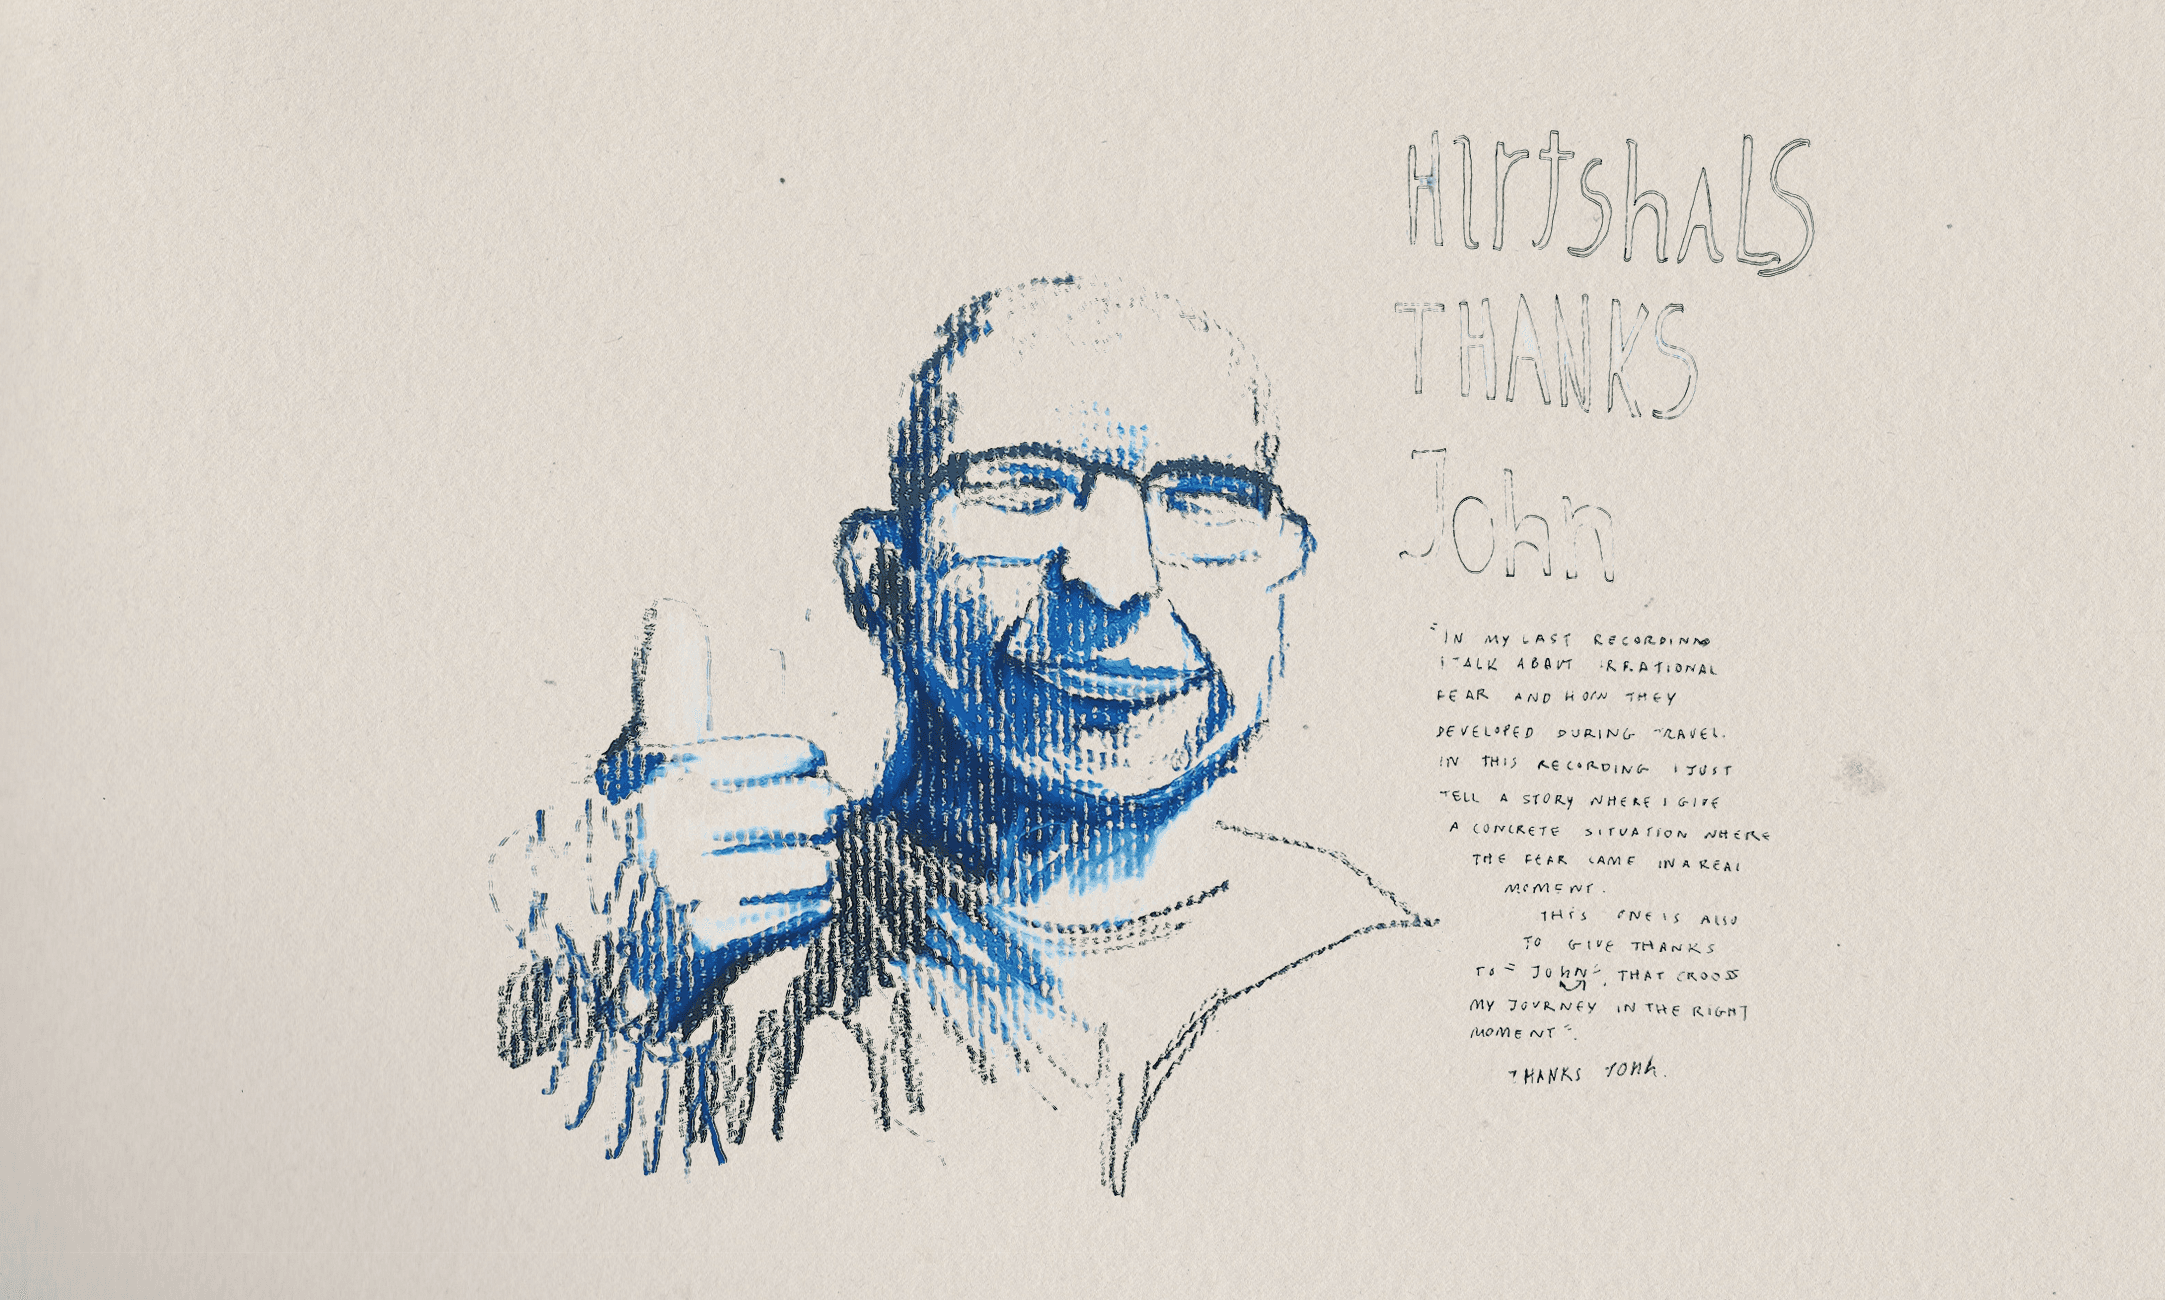 HIrtshALS
THANKS
John
"IN MY LAST RECORDING
I TALK ABAUT IRRATIONAL
FEAR AND HOW THEY
DEVELOPED DURING TRAVEL.
IN THIS RECORDING I JUST
TELL A STORY WHERE I GIVE
A CONCRETE SITUATION WHERE
THE FEAR CAME IN A REAL
MOMENT.
THIS ONE IS ALSO
TO GIVE THANKS
TO "JOhN". THAT CROOSS
MY JOURNEY IN THE RIGHT
MOMENT".
THANKS JOHN.